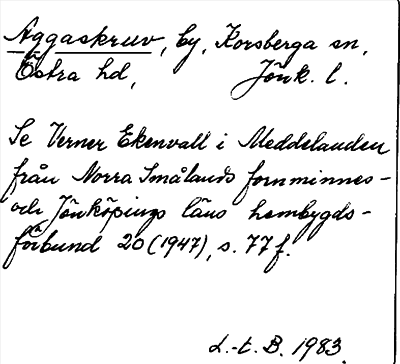 Aggaskruv, by, Korsberga sn,
Östra hd, Jönk. l.
Se Verner Ekenvall i Meddelanden
från Norra Smålands fornminnes-
och Jönköpings läns hembygds-
förbund 20 (1947), s. 77 f.
L.-t. B. 1983.